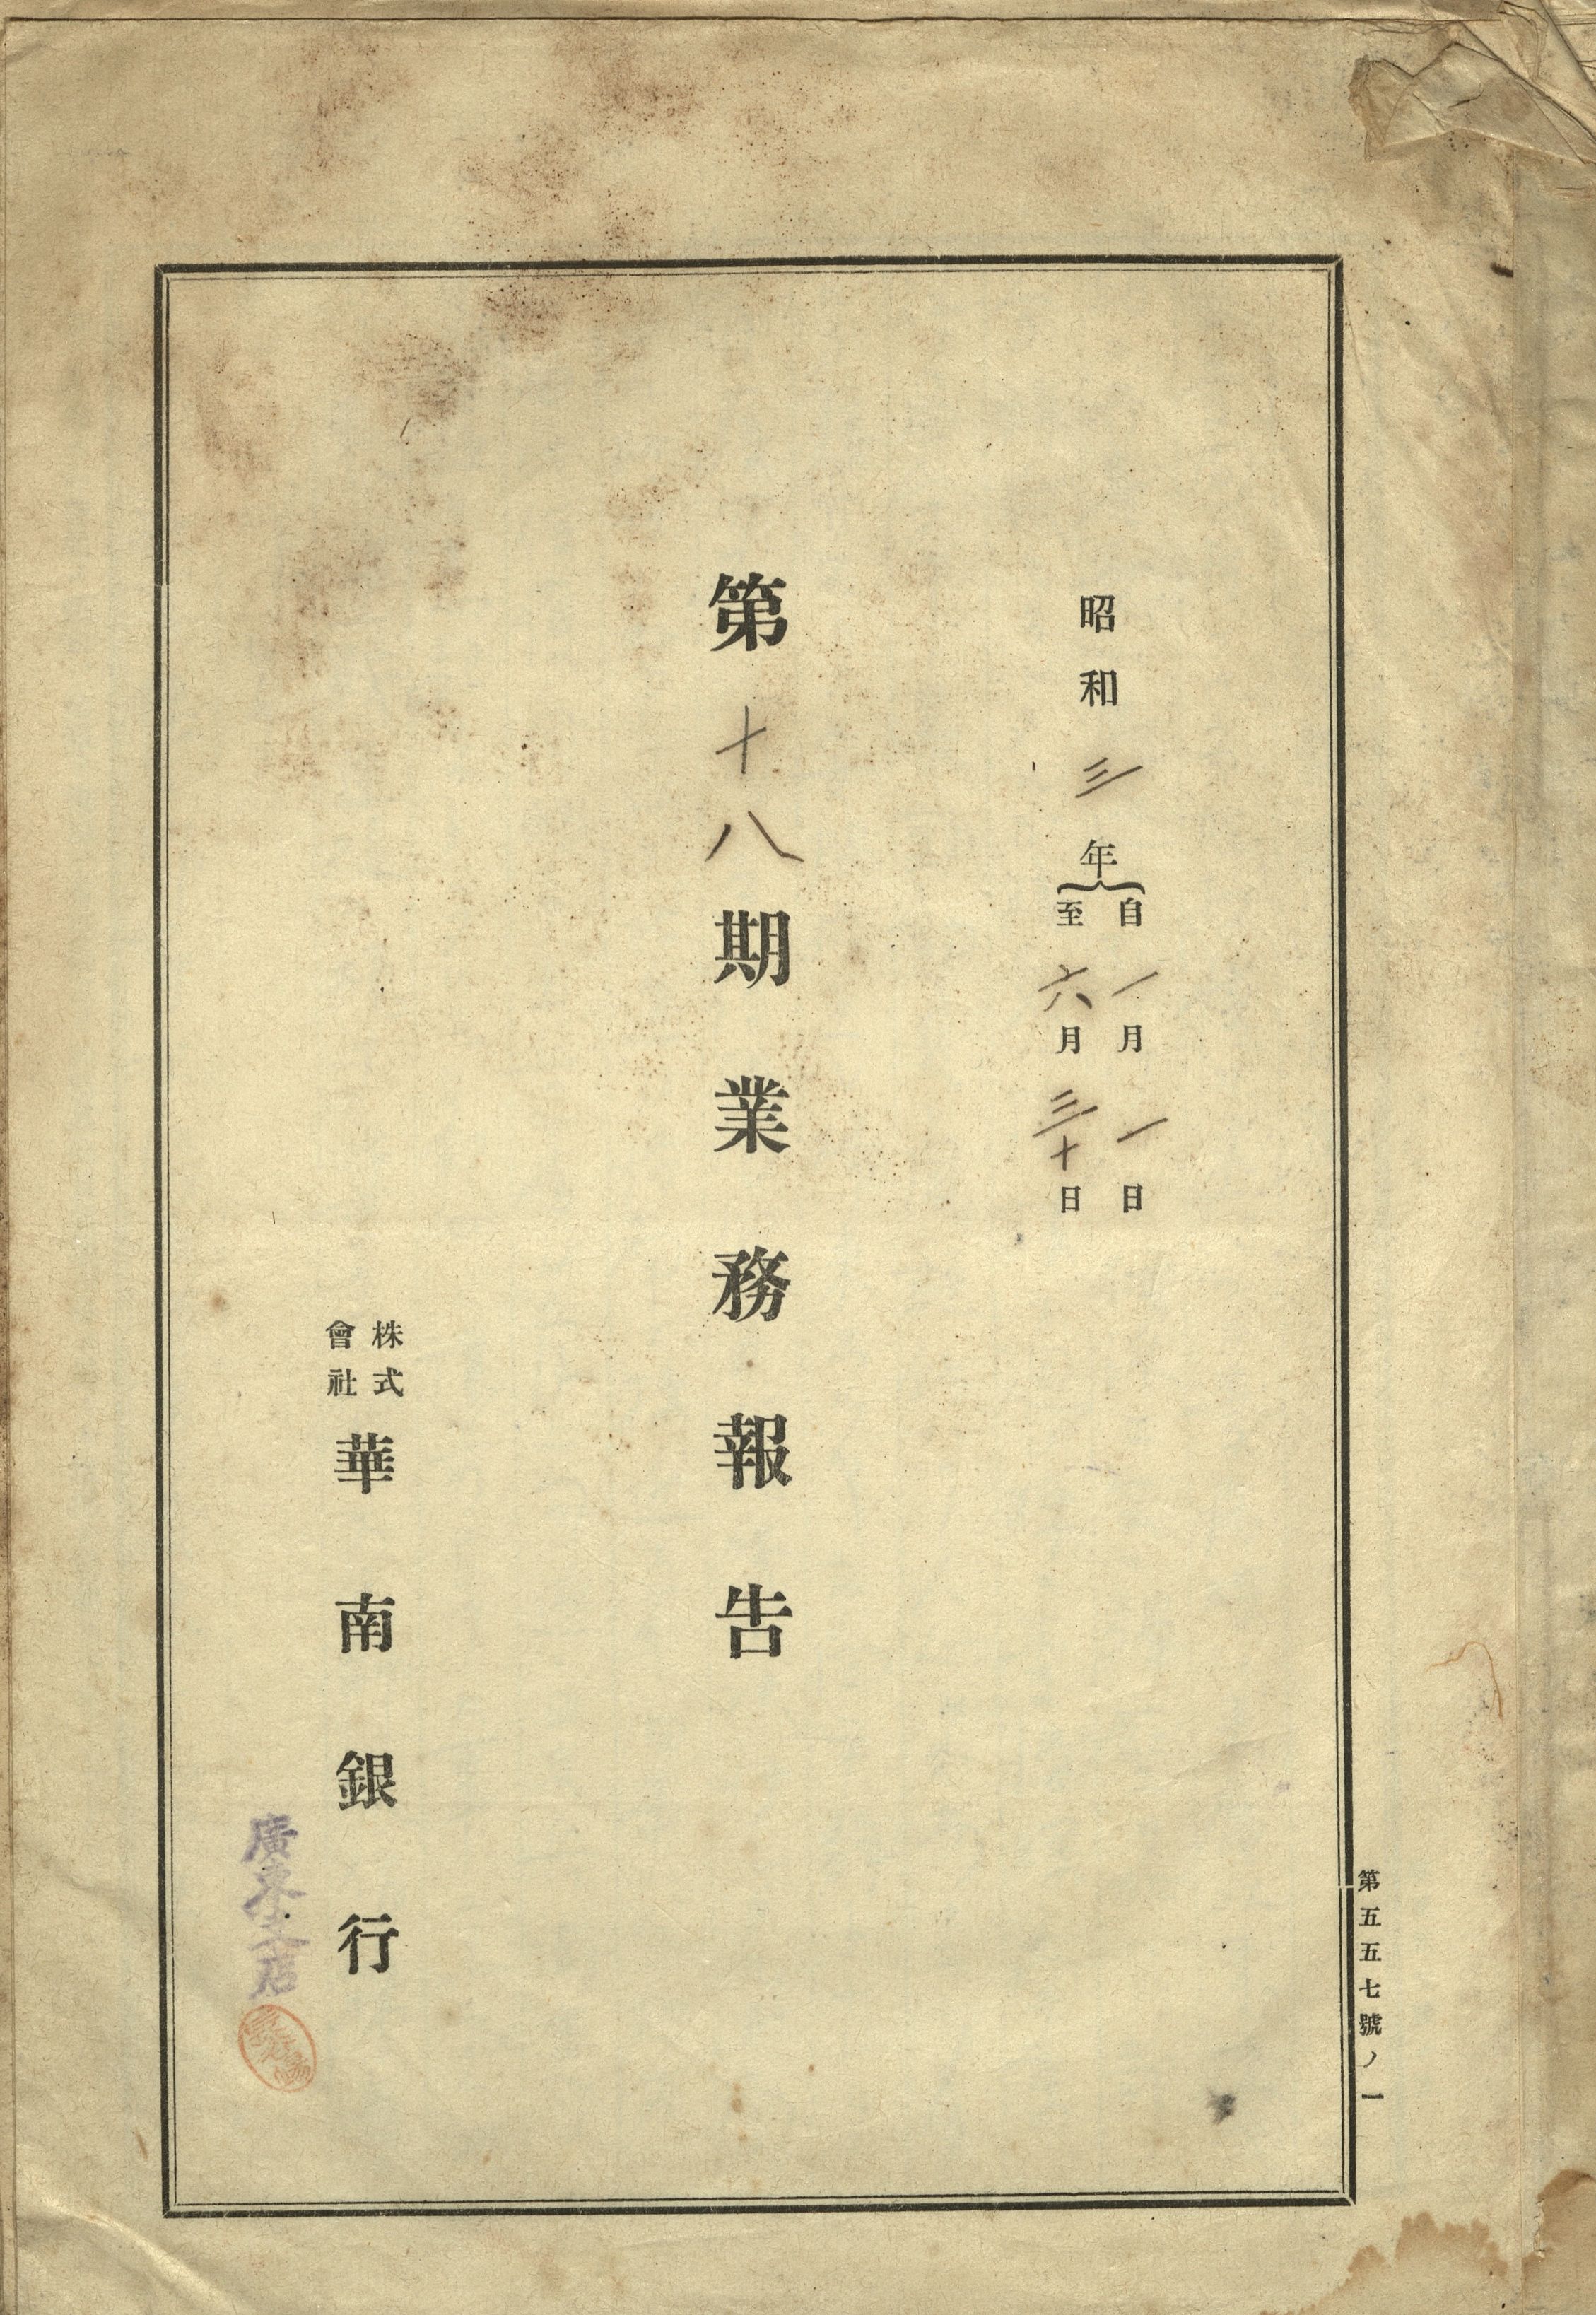 第五五七號ノ一
昭和三年
自一月一日
至六月三十日
第十八期業務報告
株式會社華南銀行
廣東支店